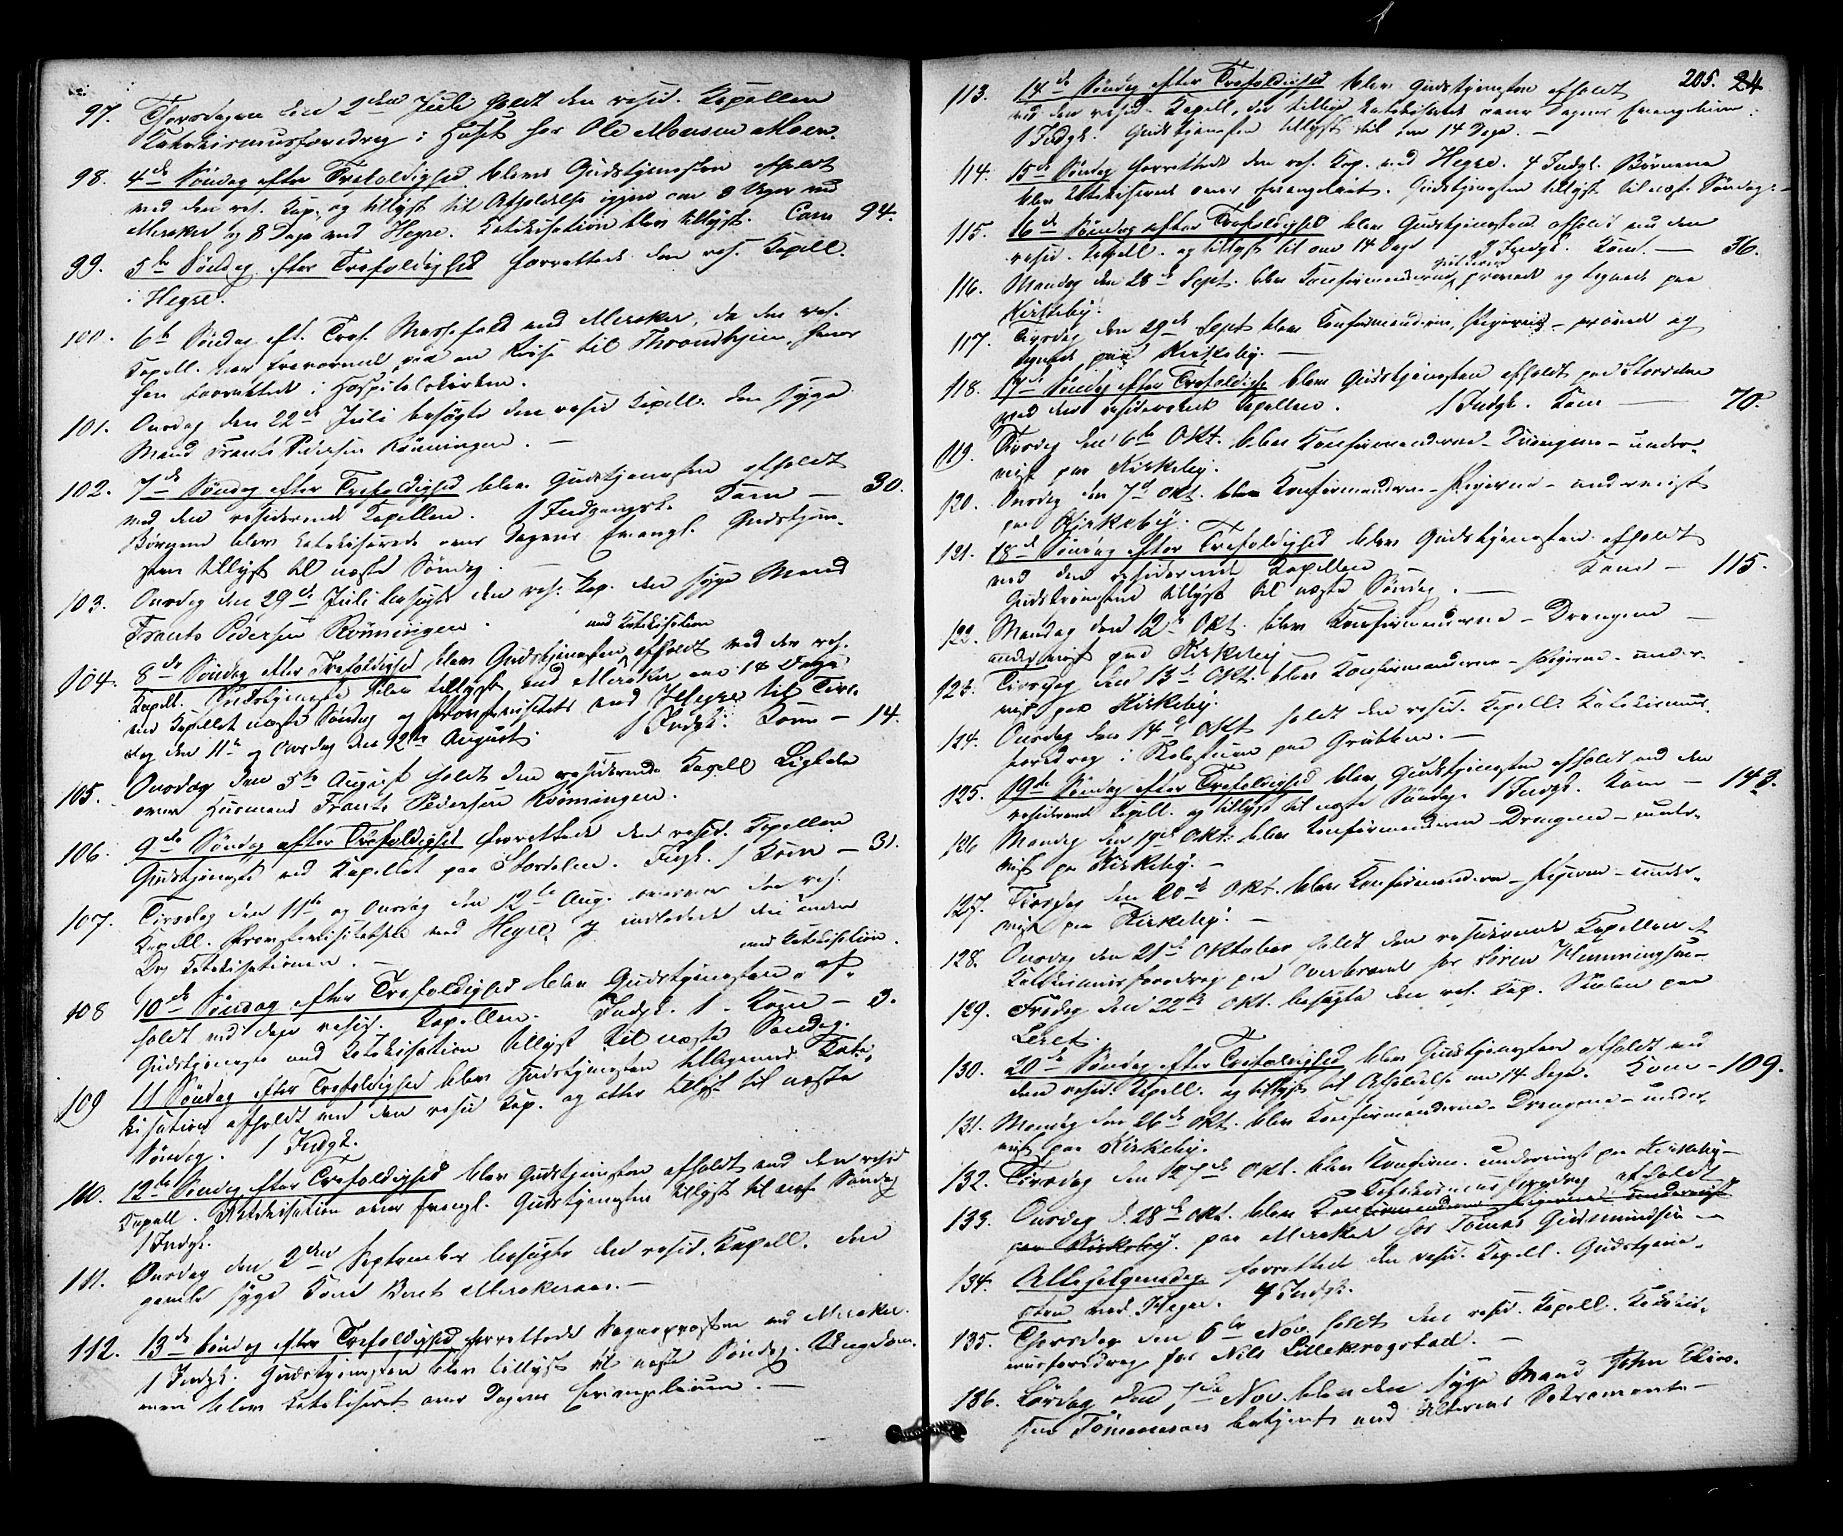 97. Thorsdagen den 2den Juli holdt den resid. Kapellan
Katekismusforedrag i Huset hos Ole Monsen Moen.
98. 4de Søndag efter Trefoldighed blev Gudstjenesten afholdt
ved den res. Kap. og tillyst til Afholdelse igjen om 8 Uger ved
Meraker og 8 Dage ved Hegre. Katekisation blev tillyst. Com 94.
99. 5te Søndag efter Trefoldighed forrettede den res. Kapell.
i Hegre.
100. 6te Søndag eft. Tref. Messefald ved Meraker, da den res.
Kapell. var fraværende paa en Reise til Throndhjem, hvor
han forrettede i Hospitalskirken.
101. Onsdag den 22de Juli besøgte den resid Kapell. den syge
Mand Frants Pedersen Rönningen. —
102. 7de Søndag efter Trefoldighed blev Gudstjenesten afholdt
ved den residerende Kapellan. 1 Indgangsk. Kom — 30.
Børnene blev katekiserede over Dagens Evangl. Gudstjene-
sten tillyst til næste Søndag. —
103. Onsdag den 29de Juli besøgte den res. Kap. den syge Mand
Frants Pedersen Rönningen.
med Katekisation
104. 8de Søndag efter Trefoldighed blev Gudstjenesten afholdt ved den res.
Kapell. Gudstjeneste blev tillyst ved Meraker om 14 Dage
ved Kapellet næste Søndag og Provstevisitats ved Hegre til Tirs-
dag den 11te og Onsdag den 12te August. 1 Indgk. Kom — 14.
105. Onsdag den 5te August holdt den residerende Kapell Ligtale
over Husmand Frants Pedersen Rönningen.
106. 9de Søndag efter Trefoldighed forrettede den resid. Kapellan
Gudstjeneste ved Kapellet paa Stordalen. Indgk. 1 Kom — 31.
107. Tirsdag den 11te og Onsdag den 12te Aug. overvar den res.
Kapell. Provstevisitatsen ved Hegre og indledede den anden
Dag Katekisationen. —
med Katekisation.
108 10de Søndag efter Trefoldighed blev Gudstjenesten af-
holdt ved den resid. Kapellan. Indgk. 1. Kom — 3.
Gudstjeneste med Katekisation tillyst til næste Søndag.
109 11 Søndag efter Trefoldighed blev Gudstjenesten tilligemed Kate-
kisation afholdt ved den resid Kap. og atter tillyst til næste
Søndag. 1 Indgk.
110. 12te Søndag efter Trefoldighed blev Gudstjenesten afholdt ved den resid
Kapell. Katekisation over Evangl. Gudstjenesten tillyst til næst Søndag
1 Indgk.
111. Onsdag den 2den September besøgte den resid. Kapell. den
gamle syge Kone Berit Merakeraas. —
112. 13de Søndag efter Trefoldighed forrettede Sognepresten ved Meraker.
1 Indgk. Gudstjenesten blev tillyst til næste Søndag. Ungdom-
men blev katekiseret over Dagens Evangelium. —
205. 24
113. 14de Søndag efter Trefoldighed blev Gudstjenesten afholdt
ved den resid. Kapell, der tillige katekiserede over Dagens Evangelium.
1 Indgk. Gudstjenesten tillyst til om 14 Dage. —
114. 15de Søndag forrettede den res. Kap. ved Hegre. 4 Indgk. Børnene
blev katekiserede over Evangeliet. Gudstjenesten tillyst til næst. Søndag. —
115. 16de Søndag efter Trefoldighed blev Gudstjenesten afholdt ved den
resid. Kapell. og tillyst til om 14 Dage 1 Indgk. Kom. — 36.
116. Mandag den 28de Sept. blev Konfirmanderne prøvede og tegnede paa
Kirkeby.
117. Tirsdag den 29de Sept blev Konfirmanderne, Pigerne — prøvede og
tegnede paa Kirkeby. —
118. 17de Søndag efter Trefoldigh. blev Gudstjenesten afholdt paa Stordalen
ved den residerende Kapellan. 1 Indgk. Kom — 70.
119. Tirsdag den 6te Okt. blev Konfirmanderne — Drengene — under-
vist paa Kirkeby.
120. Onsdag den 7de Okt. blev Konfirmanderne — Pigerne — undervist
paa Kirkeby.
121. 18de Søndag efter Trefoldighed blev Gudstjenesten afholdt
ved den residerende Kapellan Kom — 115.
Gudstjenesten tillyst til næste Søndag. —
122. Mandag den 12te Okt. blev Konfirmanderne — Drengene —
undervist paa Kirkeby —
123. Tirsdag den 13de Okt. blev Konfirmanderne — Pigerne — under-
vist paa Kirkeby.
124. Onsdag den 14de Okt holdt den resid. Kapell. Katekismus-
foredrag i Skolestuen paa Grubben. —
125. 19de Søndag efter Trefoldighed blev Gudstjenesten afholdt ved den
residerende Kapell. og tillyst til næste Søndag. 1 Indgk. Kom — 143.
126 Mandag den 19de Okt. blev Konfirmanderne — Drengene — under-
vist paa Kirkeby. —
127. Tirsdag den 20de Okt. blev Konfirmanderne — Pigerne — under-
vist paa Kirkeby. —
128. Onsdag den 21de Oktober holdt den residerende Kapellan et
Katekismusforedrag paa Overbrend hos Sören Hemmingsen —
129. Fredag den 22de Okt. besøgte den res. Kap. Skolen paa
Leret.
130. 20de Søndag efter Trefoldighed blev Gudstjenesten afholdt ved
den resid. Kapell. og tillyst til Afholdelse om 14 Dage. Kom — 109.
131. Mandag den 26de Okt. blev Konfirmanderne — Drengene — under-
vist paa Kirkeby.
132. Tirsdag den 27de Okt. blev Konfirm. undervist paa Kirkeby —
Katekismusforedrag afholdt
133. Onsdag d. 28de Okt. blev Konfirmanderne Pigerne undervist
paa Kirkeby. paa Meraker hos Tomas Gudmundsen —
134. Allehelgensdag forrettede den resid. Kapell. Gudstjene-
sten ved Hegre. 4 Indgk.
135. Thorsdag den 5te Nov. holdt den resid. Kapell. Katekis-
musforedrag hos Nils Lillekrogstad. —
136. Lørdag den 7de Nov. blev den syge Mand John
Tömmeraas betjent med Alterens Sakramente —